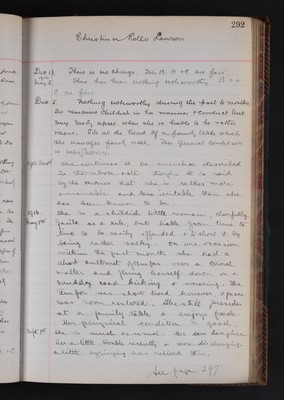 292
Christian Rollo Lawson
Dec 13. There is no change. The B. H. & C. are fair.
May 2. There has been nothing noteworthy B &
C are fair
Dec 5. Nothing noteworthy during the past 6 months
She remains childish in her manner & conduct but
only easily upset when she is liable to be rather
Sits at the head of a family table which
she manages fairly well. The general condition
is satisfactory.
She continues to be much as described
in the above note though it is said
by the nurses that she is rather more
amenable and less irritable than she
has been known to be.
1916. She is a childish little woman, cheerfully
May 5th facile as a rule, but liable from time to
time to be easily offended & to show it by
being rather sulky. On one occasion
within the past month she had a
short outburst of temper over a trivial
matter and flung herself down on a
road kicking & screaming. The
temper was short lived however & peace
was soon restored. She still presides
at a family table & enjoys
Her physical condition is good.
Sept 1st She is much as usual. Her ears have given
her a little trouble recently & were discharging.
A little syringing has relieved this.
See page 297